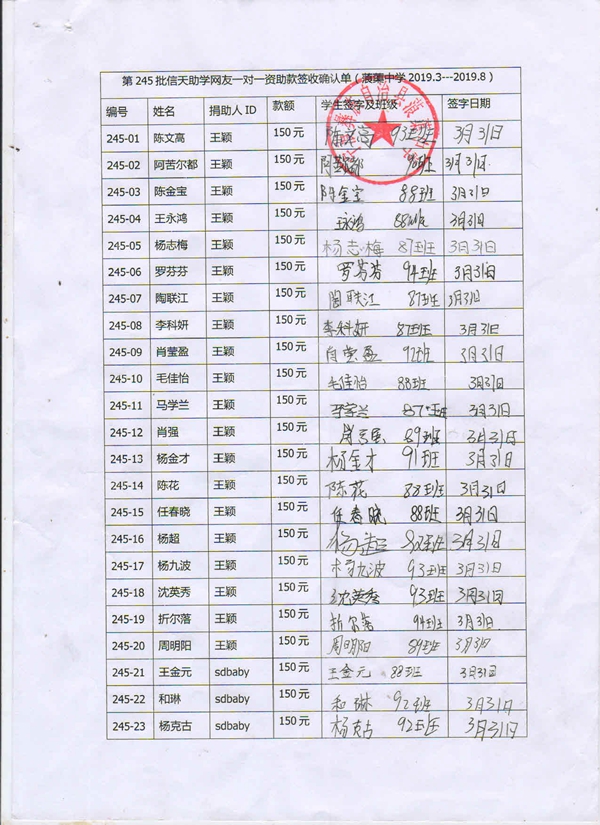 第 245 批信天助学网友一对一资助款签收确认单（蒗蕖中学 2019.3---2019.8）
编号 姓名 捐助人 ID 款额 学生签字及班级 签字日期
245-01 陈文高 王颖 150 元 陈文高 93班 3月31日
245-02 阿苦尔都 王颖 150 元 3月31日
245-03 陈金宝 王颖 150 元 陈金宝 88班 3月31日
245-04 王永鸿 王颖 150 元 王永鸿 88班 3月31日
245-05 杨志梅 王颖 150 元 杨志梅 87班 3月31日
245-06 罗芬芬 王颖 150 元 罗芬芬 94班 3月31日
245-07 陶联江 王颖 150 元 陶联江 87班 3月31日
245-08 李科妍 王颖 150 元 李科妍 87班 3月31日
245-09 肖莹盈 王颖 150 元 肖莹盈 92班 3月31日
245-10 毛佳怡 王颖 150 元 毛佳怡 88班 3月31日
245-11 马学兰 王颖 150 元 87班 3月31日
245-12 肖强 王颖 150 元 89班 3月31日
245-13 杨金才 王颖 150 元 杨金才 91班 3月31日
245-14 陈花 王颖 150 元 陈花 88班 3月31日
245-15 任春晓 王颖 150 元 任春晓 88班 3月31日
245-16 杨超 王颖 150 元 杨超 3月31日
245-17 杨九波 王颖 150 元 杨九波 93班 3月31日
245-18 沈英秀 王颖 150 元 沈英秀 93班 3月31日
245-19 折尔落 王颖 150 元 折尔落 94班 3月31日
245-20 周明阳 王颖 150 元 周明阳 89班 3月31日
245-21 王金元 sdbaby 150 元 王金元 88班 3月31日
245-22 和琳 sdbaby 150 元 和琳 92班 3月31日
245-23 杨克古 sdbaby 150 元 杨克古 92班 3月31日